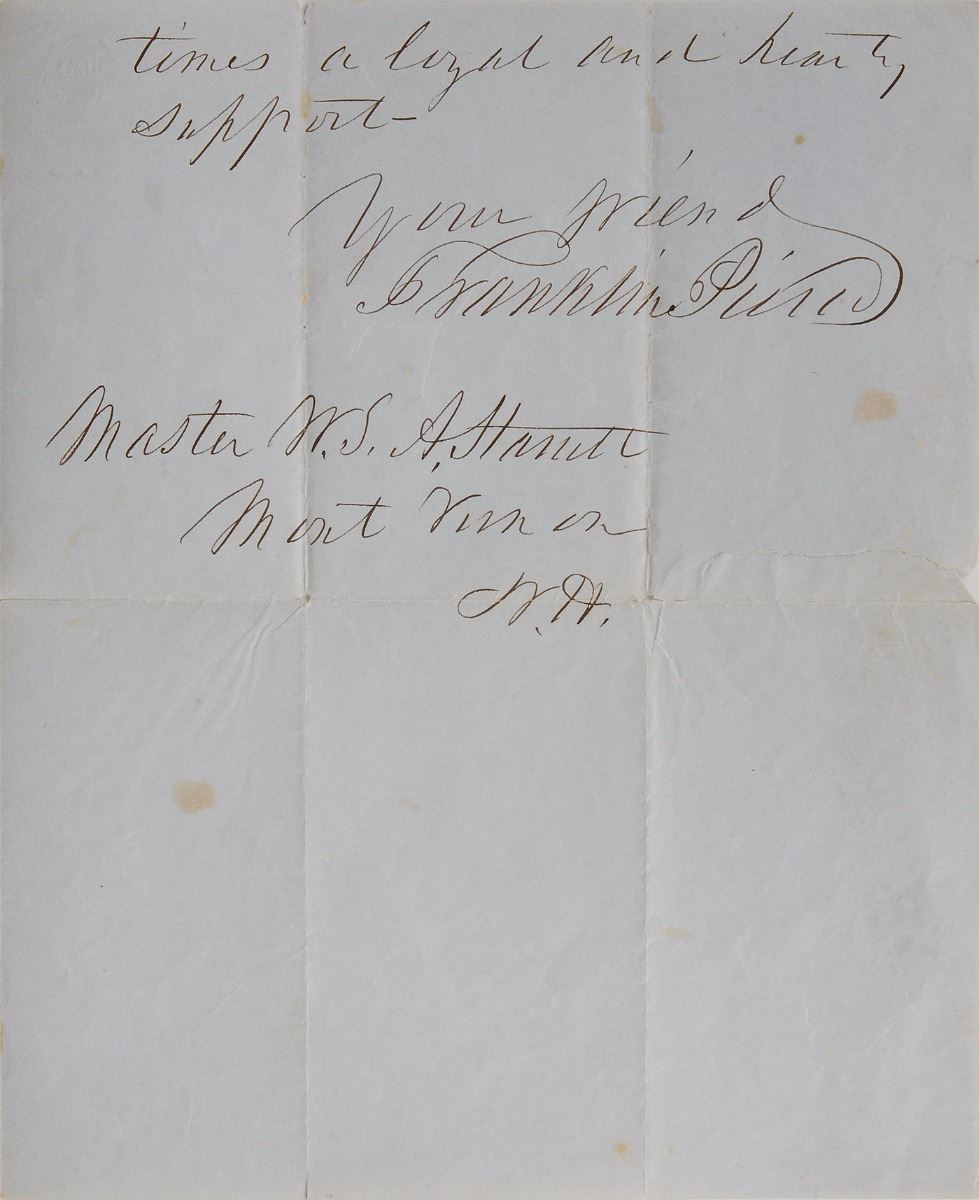 times a loyal and hearty
support—
Your friend
Franklin Pierce
Master W. S. A. Starrett
Mont Vernon
N. H.